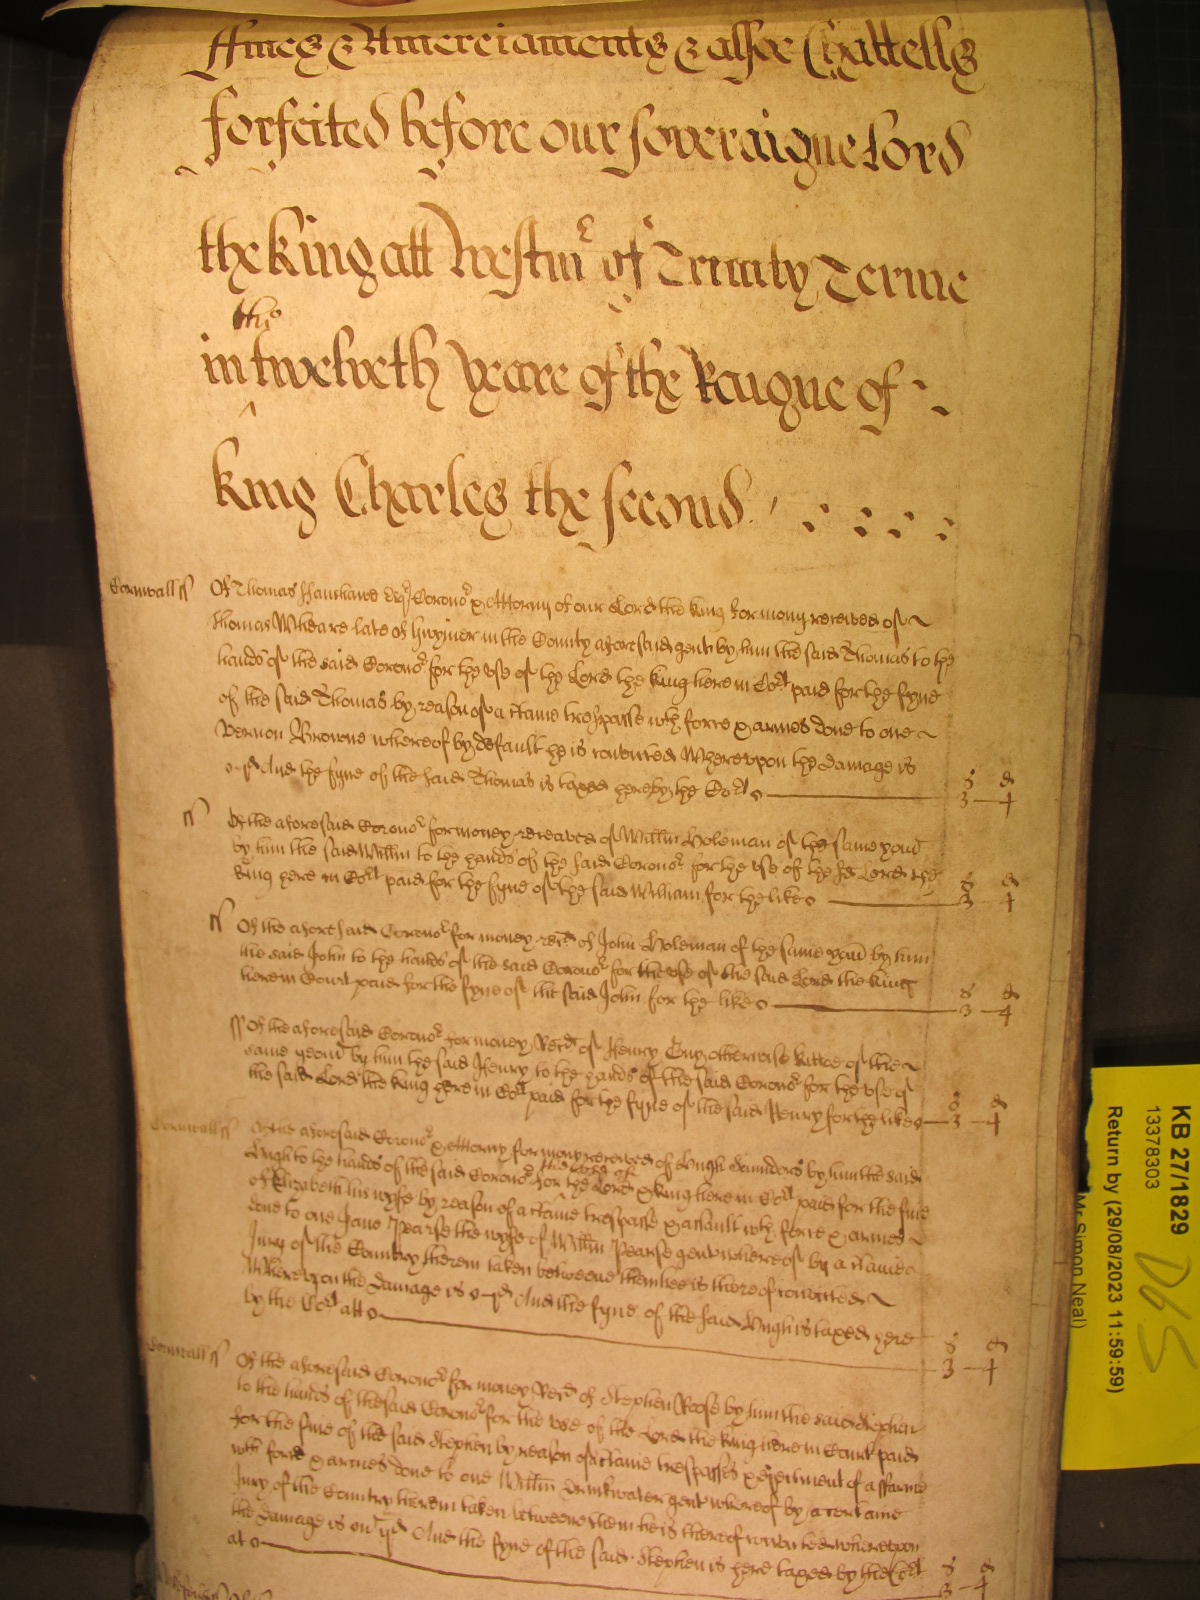 Fines & Amerciaments & alsoe Chattells
forfeited before our soveraigne Lord
the King att Westm̃ of Trinity Terme
the
in twelveth Yeare of the Reigne of
King Charles the second
Cornwall ss Of Thomas Fanshawe Esqr Corono.r & Attorny of our Lord the King for mony received of
Thomas Wheare late of Gwynier in the County aforesaid gent by him the said Thomas to the
hands of the said Corono.r for the Use of the Lord the King here in Co.rt paid for the fyne
of the said Thomas by reason of a c̃taine trespasse wth force & armes done to one
Vernon Browne whereof by default he is convicted Whereupon the damage is
And the fyne of the said Thomas is taxed here by the Co.rt
s d
3 4
ss Of the aforesaid Corono.r for money received of Willm̃ Holeman of the same yom̃
by him the said Willm̃ to the hands of the said Corono.r for the Use of the sd Lord the
King here in Co.rt paid for the fyne of the said William for the like
s d
3 4
ss Of the aforesaid Corono.r for money rec.d of John Holeman of the same yom̃ by him
the said John to the hands of the said Corono.r for the Use of the said Lord the King
here in Court paid for the fyne of the said John for the like
s d
3 4
ss Of the aforesaid Corono.r for money Rec.d of Henry otherwise of the
same yeom̃ by him the said Henry to the hands of the said Corono.r for the Use of
the said Lord the King here in Co.rt paid for the fyne of the said Henry for the like
s d
3 4
Cornwall ss Of the aforesaid Corono.r & Attorny for mony received of Hugh Saunders by him the said
the Use of
Hugh to the hands of the said Corono.r for the Lord King here in Co.rt paid for the fine
of Elizabeth his wyfe by reason of a c̃taine trespasse & assault wth force & armes
done to one Jane Pearse the wyfe of Willm̃ Pearse gent whereof by a c̃taine
Jury of the Country therein taken betweene them hee is thereof convicted
Whereupon the damage is And the fyne of the said Hugh is taxed here
by the Co.rt att
s d
3 4
Cornwall ss Of the aforesaid Corono.r for money Rec.d of Stephen Roose by him the said Stephen
to the hands of the said Corono.r for the use of the Lord the King here in Court paid
for the fine of the said Stephen by reason of c̃taine trespasses & ejectment of a ffarme
wth force & armes done to one Willm̃ Drinkwater gent whereof by a certaine
Jury of the Country therein taken betweene them he is thereof convicted whereupon
the damage is And the fyne of the said Stephen is here taxed by the Co.rt
at
s d
3 4
KB 27/1829
13378303
Return by (29/08/2023 11:59:59)
Mr Simon Neal)
D6S